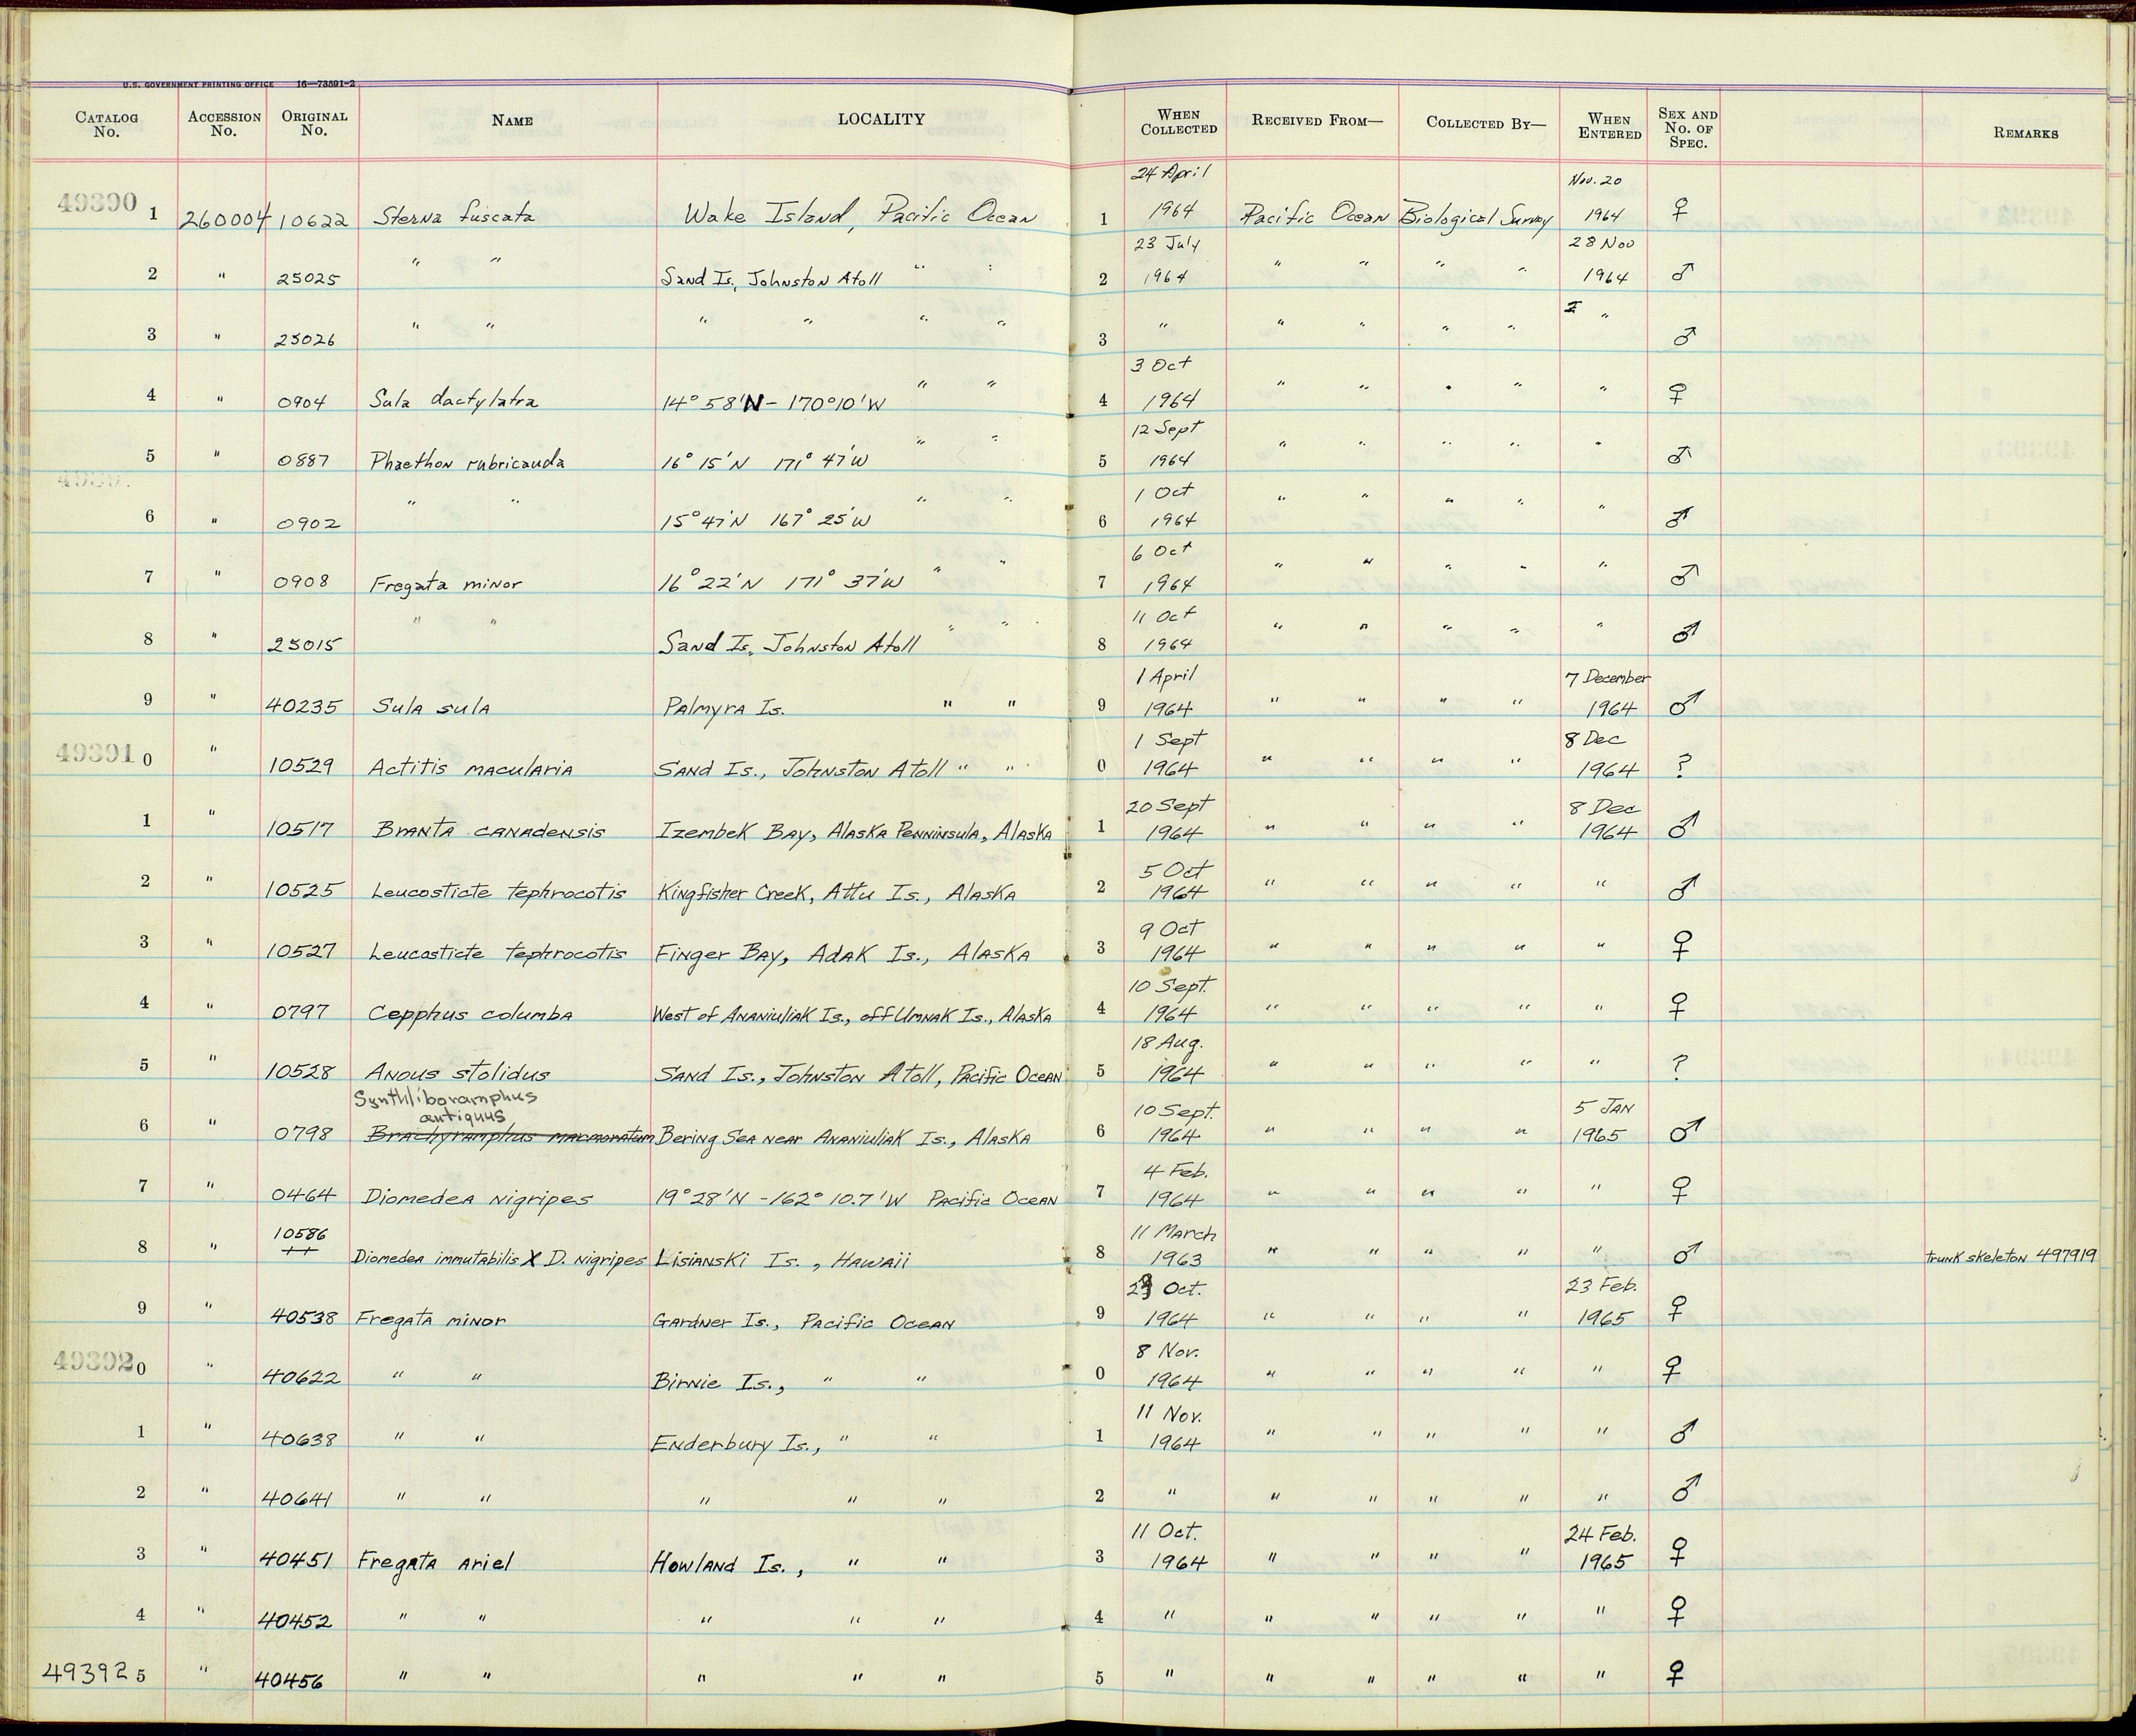 U.S. GOVERNMENT PRINTING OFFICE 16—73591-2
CATALOG No. ACCESSION No. ORIGINAL No. NAME LOCALITY WHEN COLLECTED RECEIVED FROM— COLLECTED BY— WHEN ENTERED SEX AND No. OF SPEC. REMARKS
49390 1 260004 10622 Sterna fuscata Wake Island, Pacific Ocean 1 24 April 1964 Pacific Ocean Biological Survey Nov. 20 1964 ♀
2 " 25025 " " Sand Is., Johnston Atoll " " 2 23 July 1964 " " " " 28 Nov 1964 ♂
3 " 25026 " " " " " " 3 " " " " " " ♂
4 " 0904 Sula dactylatra 14° 58'N - 170°10'W " " 4 3 Oct 1964 " " " " " ♀
5 " 0887 Phaethon rubricauda 16° 15'N 171° 47'W " " 5 12 Sept 1964 " " " " " ♂
6 " 0902 " " 15° 47'N 167° 25'W " " 6 1 Oct 1964 " " " " " ♂
7 " 0908 Fregata minor 16° 22'N 171° 37'W " " 7 6 Oct 1964 " " " " " ♂
8 " 25015 " " Sand Is., Johnston Atoll " " 8 11 Oct 1964 " " " " " ♂
9 " 40235 Sula sula Palmyra Is. " " 9 1 April 1964 " " " " 7 December 1964 ♂
49391 0 " 10529 Actitis macularia Sand Is., Johnston Atoll " " 0 1 Sept 1964 " " " " 8 Dec 1964 ?
1 " 10517 Branta canadensis Izembek Bay, Alaska Penninsula, Alaska 1 20 Sept 1964 " " " " 8 Dec 1964 ♂
2 " 10525 Leucosticte tephrocotis Kingfisher Creek, Attu Is., Alaska 2 5 Oct 1964 " " " " " ♂
3 " 10527 Leucosticte tephrocotis Finger Bay, Adak Is., Alaska 3 9 Oct 1964 " " " " " ♀
4 " 0797 Cepphus columba West of Ananiuliak Is., off Umnak Is., Alaska 4 10 Sept. 1964 " " " " " ♀
5 " 10528 Anous stolidus Sand Is., Johnston Atoll, Pacific Ocean 5 18 Aug. 1964 " " " " " ?
Synthliboramphus antiquus
6 " 0798 Brachyramphus marmoratum Bering Sea near Ananiuliak Is., Alaska 6 10 Sept. 1964 " " " " 5 Jan 1965 ♂
7 " 0464 Diomedea nigripes 19°28'N - 162° 10.7'W Pacific Ocean 7 4 Feb. 1964 " " " " " ♀
8 " 10586 ++ Diomedea immutabilis X D. nigripes Lisianski Is., Hawaii 8 11 March 1963 " " " " " ♂ trunk skeleton 497919
9 " 40538 Fregata minor Gardner Is., Pacific Ocean 9 Oct. 1964 " " " " 23 Feb. 1965 ♀
49392 0 " 40622 " " Birnie Is., " " 0 8 Nov. 1964 " " " " " ♀
1 " 40638 " " Enderbury Is., " " 1 11 Nov. 1964 " " " " " ♂
2 " 40641 " " " " " 2 " " " " " " ♂
3 " 40451 Fregata ariel Howland Is., " " 3 11 Oct. 1964 " " " " 24 Feb. 1965 ♀
4 " 40452 " " " " " 4 " " " " " " ♀
49392 5 " 40456 " " " " " 5 " " " " " " ♀